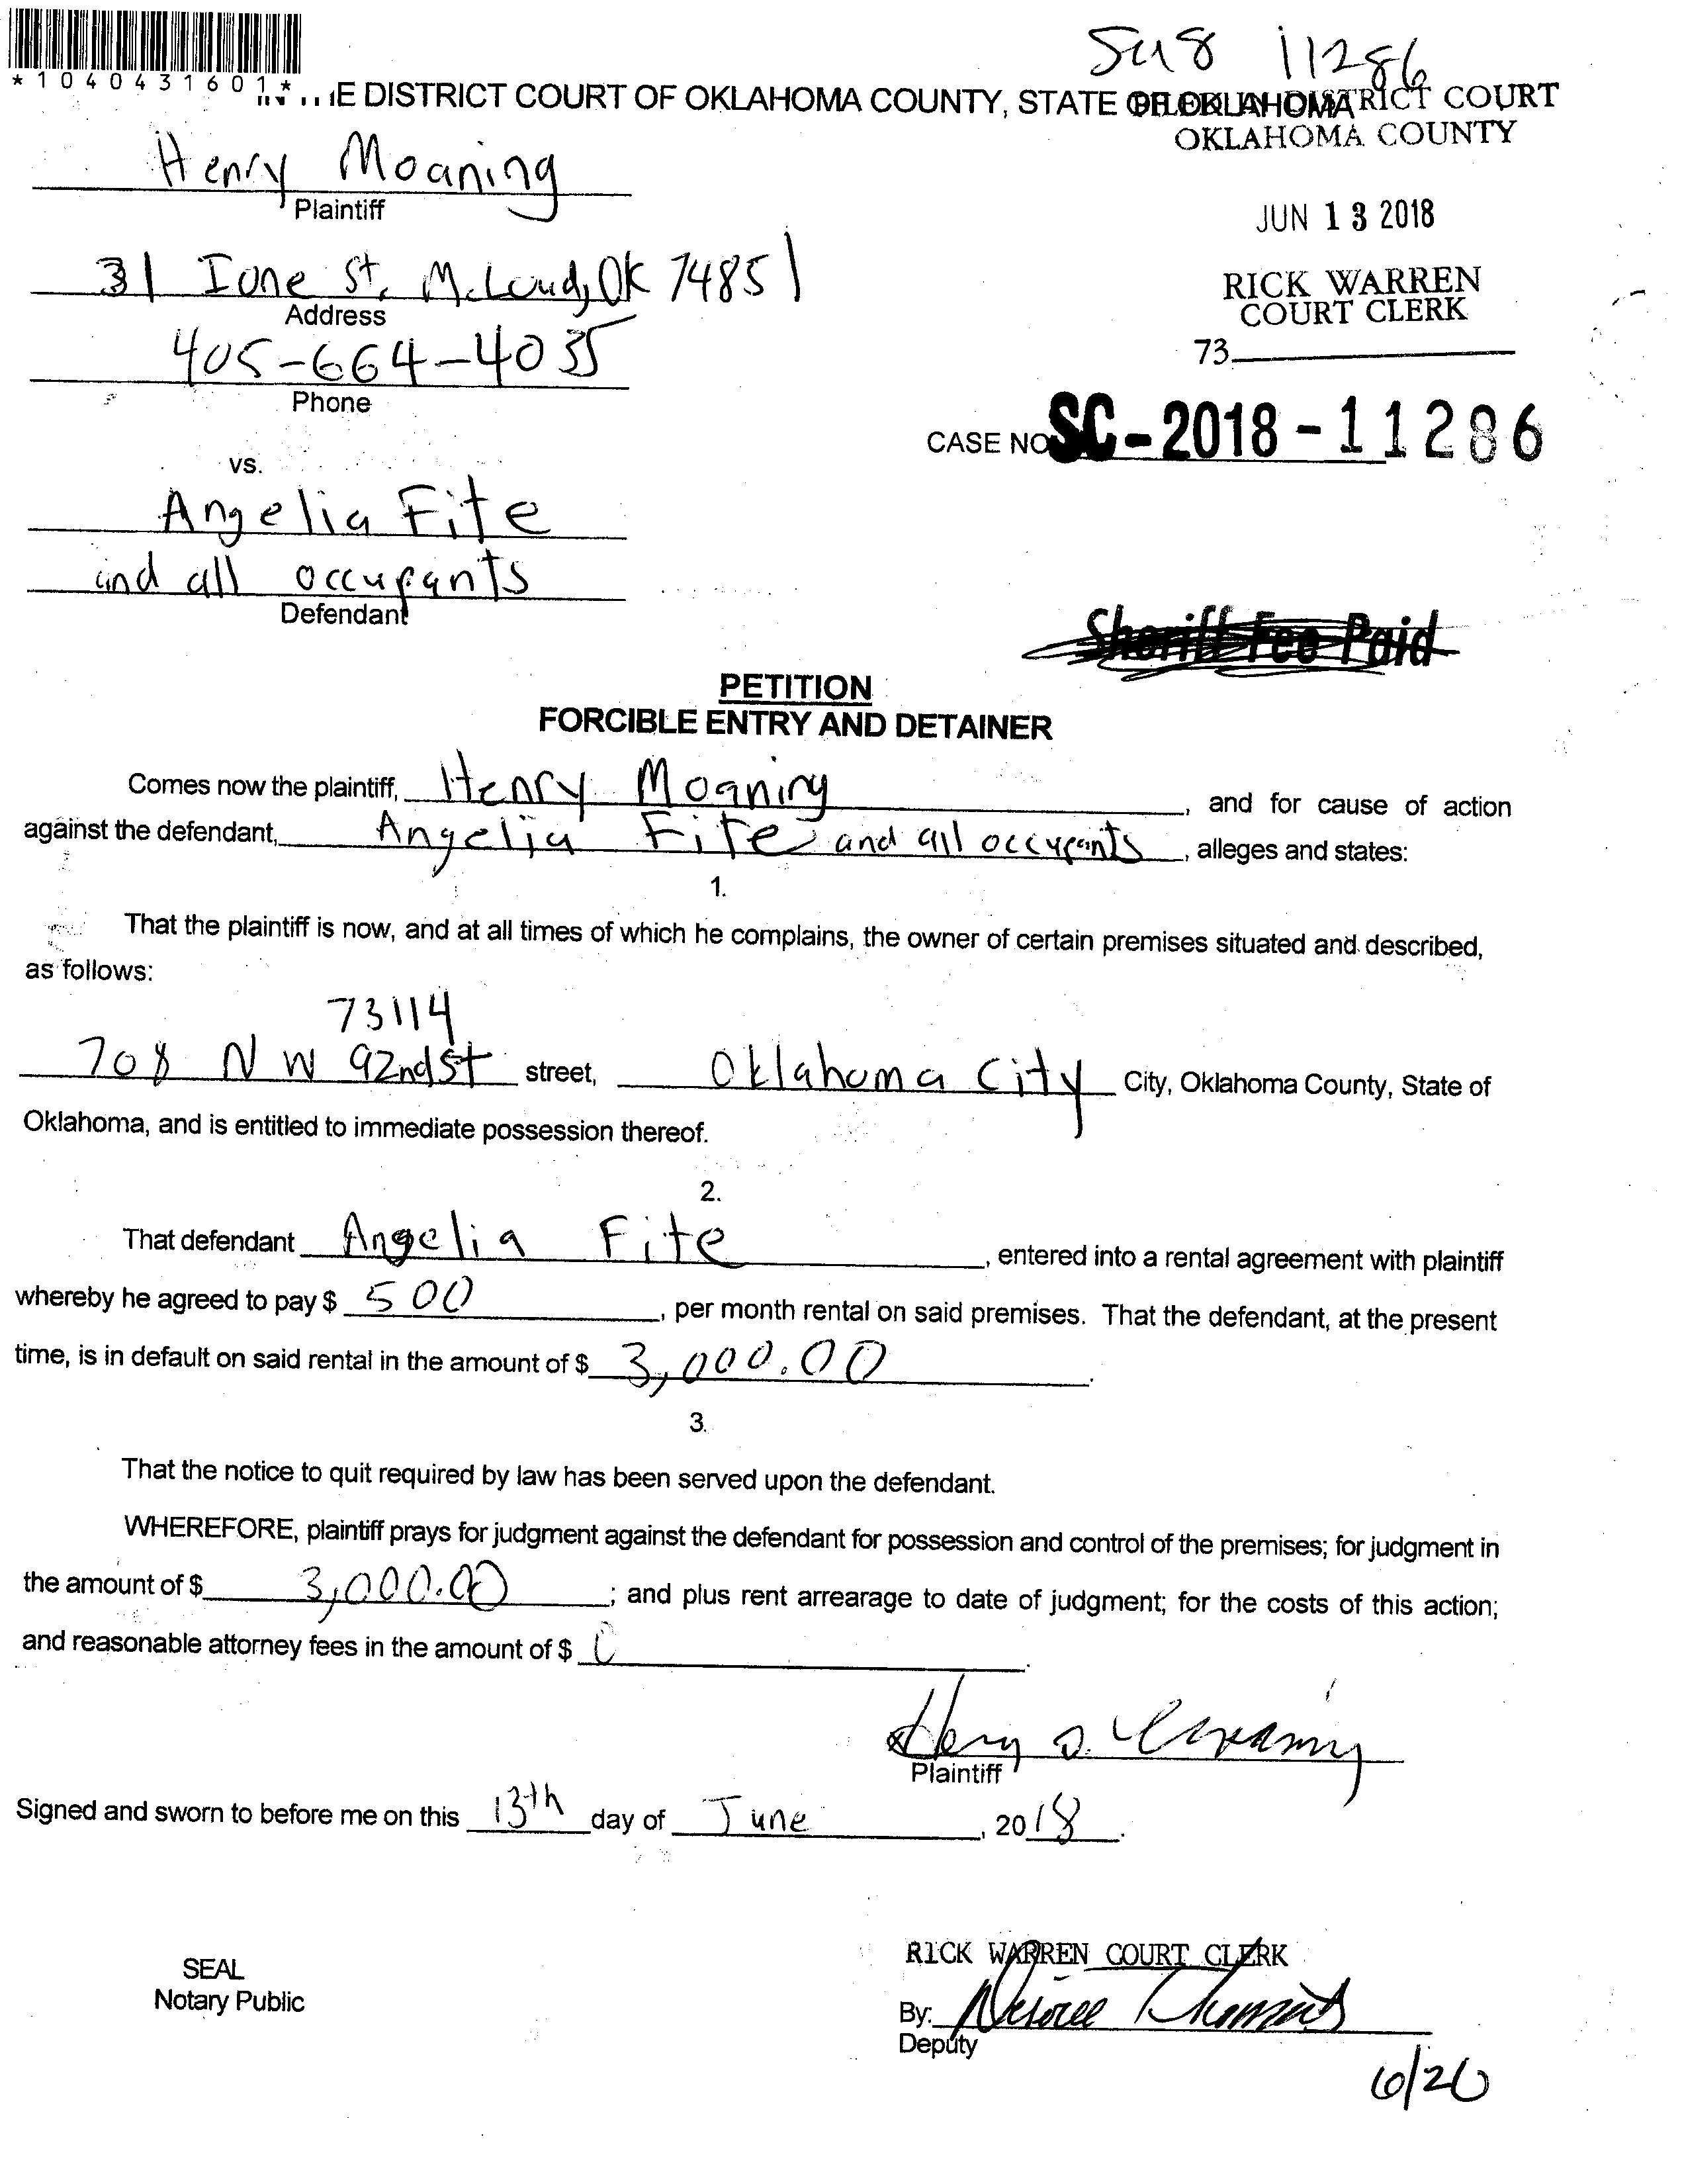 Su8 11286
*1040431601*
E DISTRICT COURT OF OKLAHOMA COUNTY, STATE OF OKLAHOMA
DISTRICT COURT
OKLAHOMA COUNTY
Henry Moaning
Plaintiff
JUN 13 2018
31 Ione St, McLoud, OK 74851
Address
RICK WARREN
COURT CLERK
405-664-4035
Phone
73
CASE NO SC-2018-11286
vs.
Angelia Fite
and all occupants
Defendant
Sheriff Fee Paid
PETITION
FORCIBLE ENTRY AND DETAINER
Comes now the plaintiff, Henry Moaning, and for cause of action
against the defendant, Angelia Fite and all occupants, alleges and states:
1.
That the plaintiff is now, and at all times of which he complains, the owner of certain premises situated and described,
as follows:
73114
708 NW 92nd St street, Oklahoma City City, Oklahoma County, State of
Oklahoma, and is entitled to immediate possession thereof.
2.
That defendant Angelia Fite, entered into a rental agreement with plaintiff
whereby he agreed to pay $ 500, per month rental on said premises. That the defendant, at the present
time, is in default on said rental in the amount of $ 3,000.00.
3.
That the notice to quit required by law has been served upon the defendant.
WHEREFORE, plaintiff prays for judgment against the defendant for possession and control of the premises; for judgment in
the amount of $ 3,000.00; and plus rent arrearage to date of judgment; for the costs of this action;
and reasonable attorney fees in the amount of $ 0.
Plaintiff
Signed and sworn to before me on this 13th day of June, 2018.
SEAL
Notary Public
RICK WARREN COURT CLERK
By:
Deputy
6/26